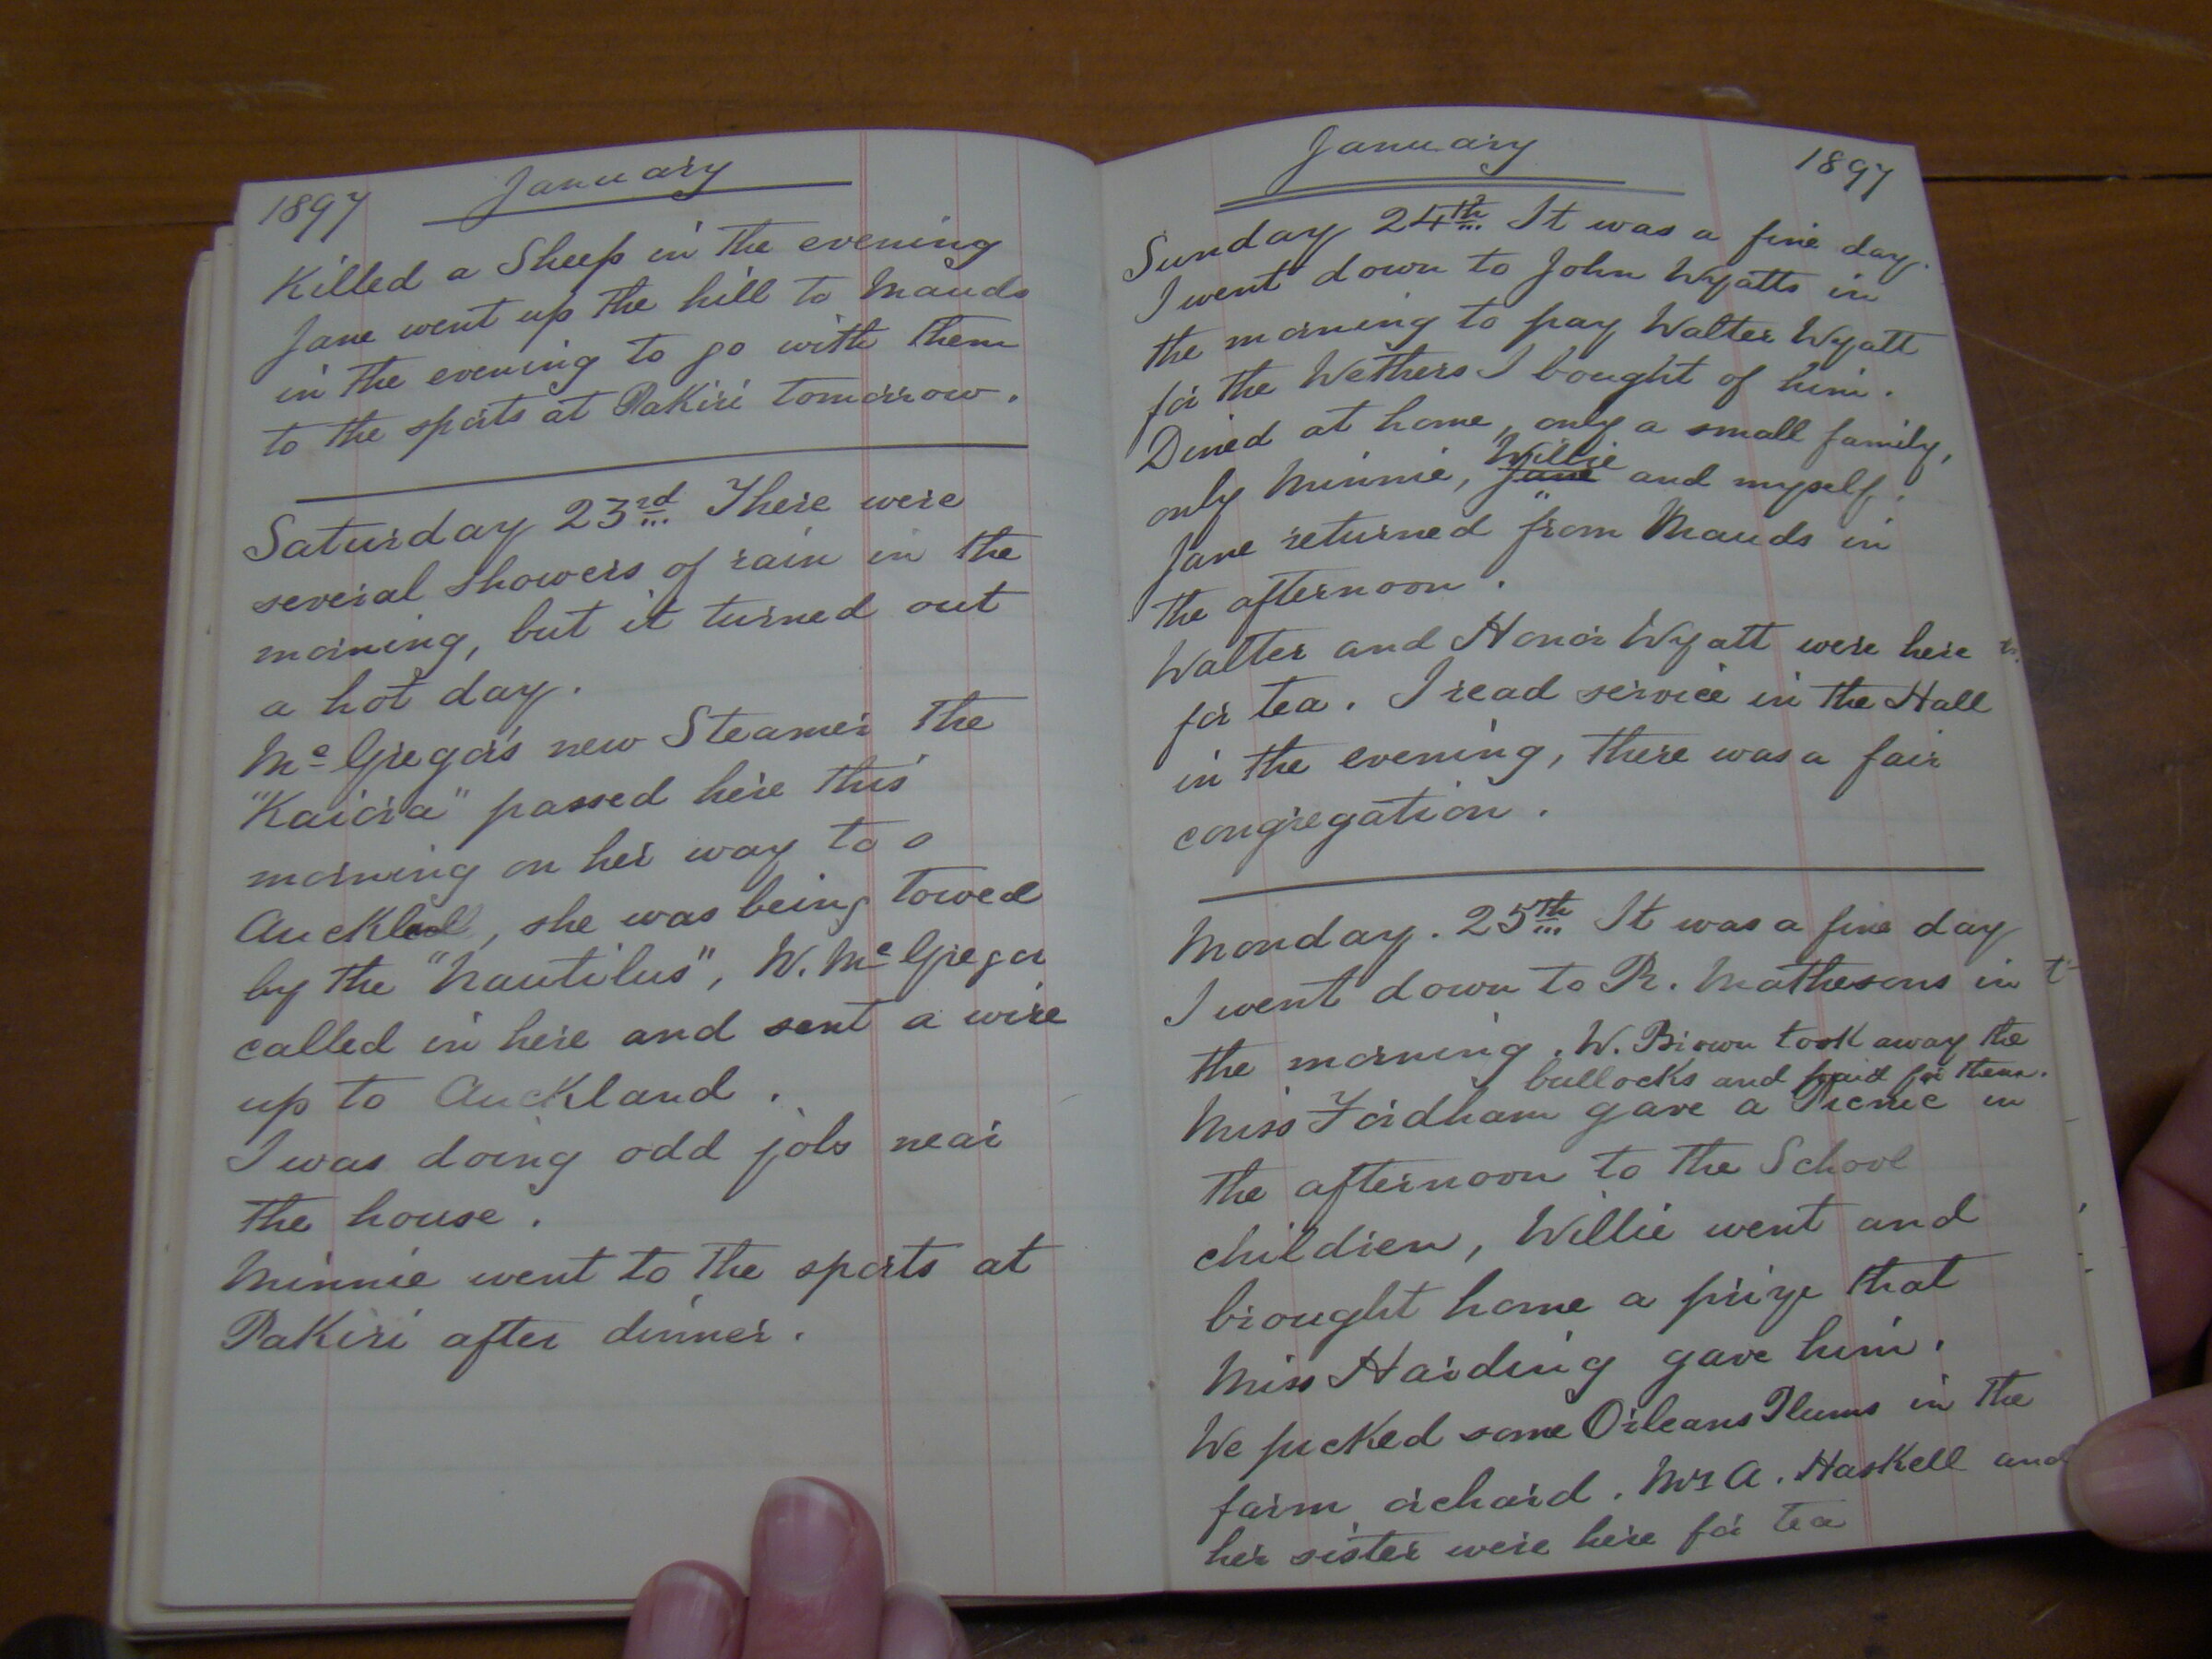 1897 January
Killed a Sheep in the evening
Jane went up the hill to Mauds
in the evening to go with them
to the sports at Pakiri tomorrow.
Saturday 23rd There were
several showers of rain in the
morning, but it turned out
a hot day.
McGregor's new Steamer the
"Kaiora" passed here this
morning on her way to
Auckland, she was being towed
by the "Nautilus", W. McGregor
called in here and sent a wire
up to Auckland.
I was doing odd jobs near
the house.
Minnie went to the sports at
Pakiri after dinner.
January 1897
Sunday 24th It was a fine day.
I went down to John Wyatts in
the morning to pay Walter Wyatt
for the Wethers I bought of him.
Dined at home, only a small family,
only Minnie, Willie Jane and myself.
Jane returned from Mauds in
the afternoon.
Walter and Honor Wyatt were here
for tea. I read service in the Hall
in the evening, there was a fair
congregation.
Monday. 25th It was a fine day
I went down to R. Mathesons in
the morning. W. Brown took away the
bullocks and paid for them.
Miss Fordham gave a Picnic in
the afternoon to the School
children, Willie went and
brought home a prize that
Miss Harding gave him.
We picked some Orleans Plums in the
farm orchard. Mrs A. Haskell and
her sister were here for tea